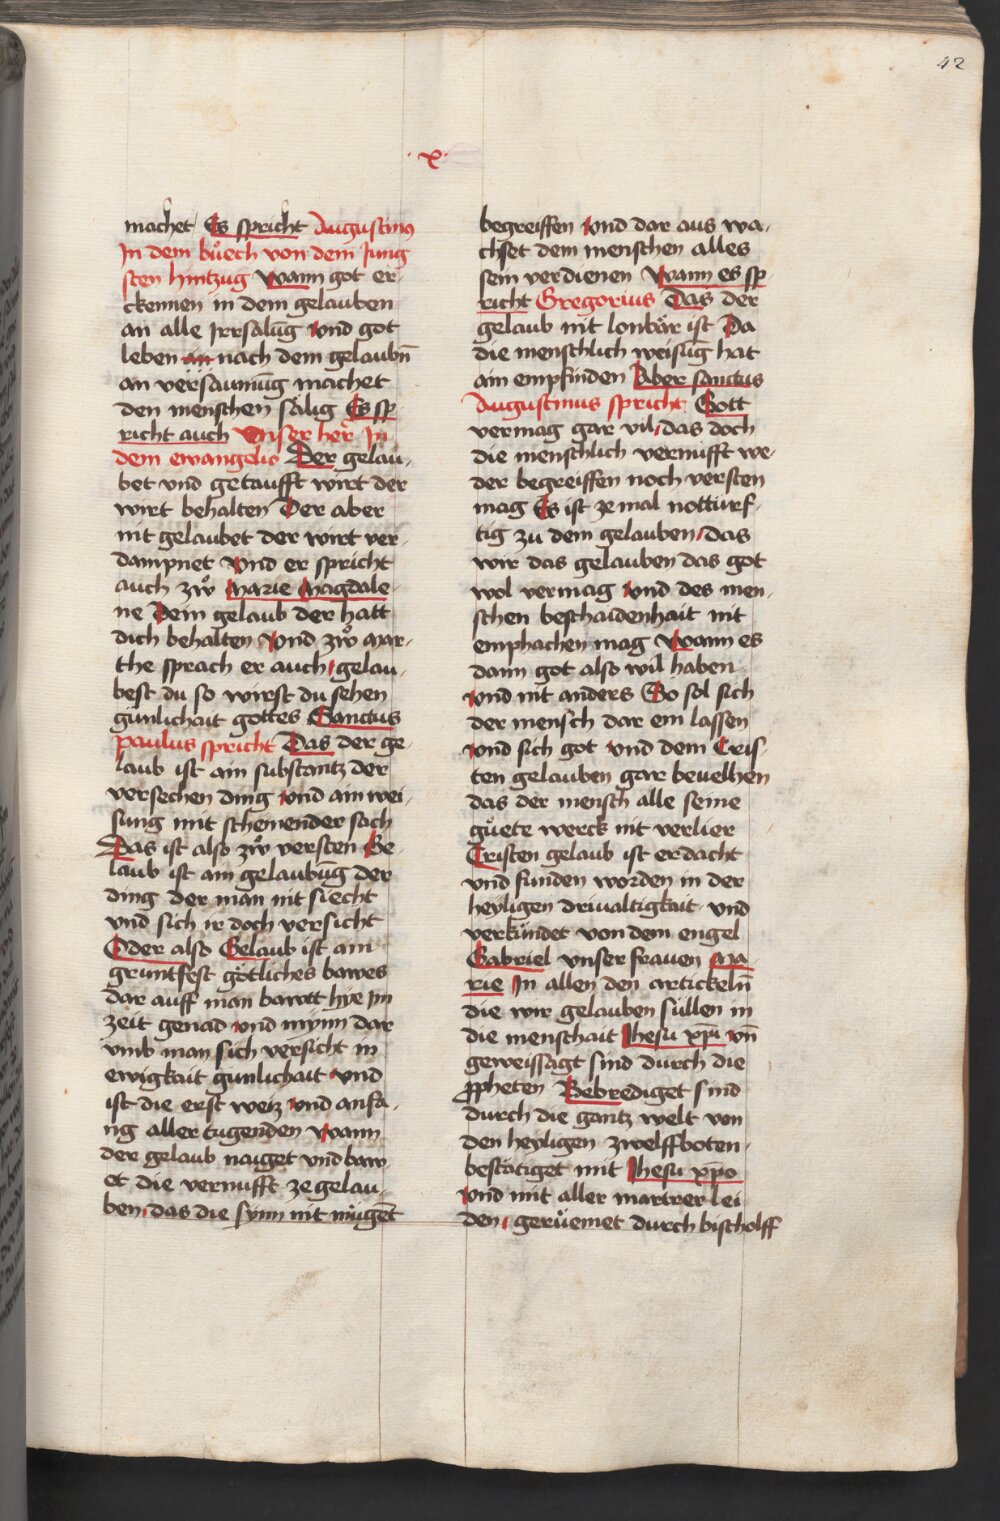 42
.x.
machet Es spricht Augustinus
In dem buͦech von dem Jung
sten hintzug Wann got er-
ckennen in dem gelauben
an alle Irrsalūg vnd got
leben an nach dem gelaubn̄
an versaumūg machet
den menschen sälig Es sp
richt auch Vnser her̄ In
dem ewangelio Der gelau-
bet vnd getaufft wirt der
wirt behalten Der aber
nit gelaubet der wirt ver-
dampnet Vnd er spricht
auch zwͦ Marie Magdale
ne Dein gelaub der hatt
dich behalten Vnd zwͦ mar-
the sprach er auch / gelau-
best du so wirst du sehen
gunlichait gottes Sanctus
paulus spricht Das der ge-
laub ist ain substantz der
versechen ding vnd ain wei-
sung mit scheinender sach
Das ist also zwͦ versten Ge-
laub ist ain gelaubūg der
ding der man nit siecht
vnd sich ir doch versicht
Oder also Gelaub ist ain
gruntfest götliches bawes
dar auff man bawtt hye Im
zeit genad vnd mynn dar
vmb man sich versicht in
ewigkait gunlichait vnd
ist die erst weiz vnd anfa-
ng aller tugenden Wann
der gelaub nauget vnd baw-
et die vernufft ze gelau-
ben / das die synn nit mügēt
begreiffen vnd dar aus wa-
chset dem menschen alles
sein verdienen Wann es sp
richt Gregorius Das der
gelaub nit lonbär ist Da
die menschlich weisūg hat
ain empfinden Aber sanctus
Augustinus spricht Gott
vermag gar vil / das doch
die menschlich vernufft we-
der begreiffen noch versten
mag Es ist ze mal notturf-
tig zu dem gelauben / das
wir das gelauben das got
wol vermag vnd des men-
schen beschaidenhait nit
emphachen mag Wann es
dann got also wil haben
vnd nit anders So sol sich
der mensch dar ein lassen
vnd sich got vnd dem Cris-
ten gelauben gar beuelhen
das der mensch alle seine
guͦete werck nit verlier
Cristen gelaub ist erdacht
vnd funden worden in der
heyligen driualtigkait vnd
verkündet von dem engel
Gabriel vnser frauen Ma-
rie In allen den artickeln̄
die wir gelauben süllen in
die menschait Jhesu xp̄i vn̄
geweissagt sind durch die
ꝓpheten Bebrediget sind
durch die gantz welt von
den heyligen zwelffboten
bestätiget mit Jhesu xp̄o
vnd mit aller martrer lei
den / geruͦemet durch bischolff